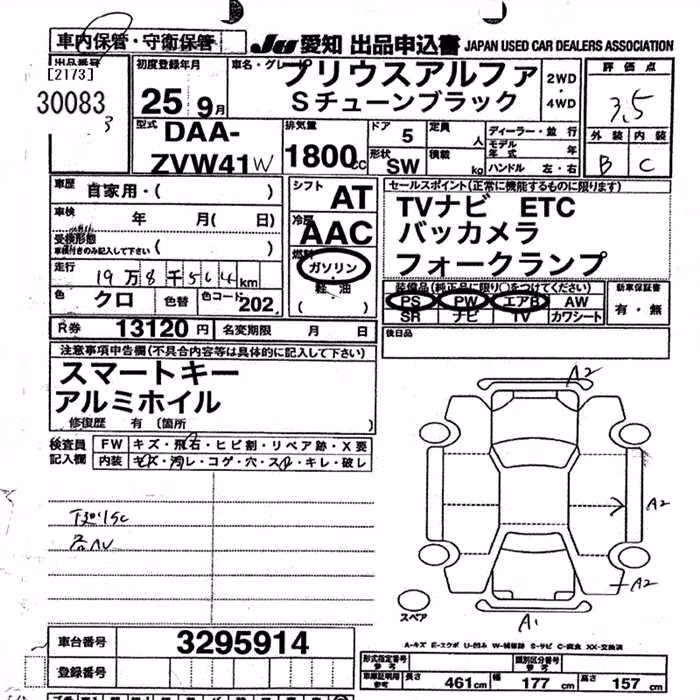 車内保管・守衛保管
JU 愛知 出品申込書 JAPAN USED CAR DEALERS ASSOCIATION
出品番号
[2173]
30083
3
初度登録年月
25 9月
車名・グレード
プリウスアルファ
Sチューンブラック
2WD
・
4WD
評価点
3.5
外装 内装
B C
型式
DAA-
ZVW41W
排気量
1800cc
ドア 5
形状 SW
定員 人
積載 kg
ディーラー・並行
モデル年式 年
ハンドル 左・右
車歴 自家用・( )
車検 年 月( 日)
受検形態
車検付きのみ記入して下さい ( )
走行 19万8千564km
色 クロ 色替 色コード 202
R券 13120円 名変期限 月 日
シフト AT
冷房 AAC
燃料 ガソリン
・
軽油
( )
セールスポイント(正常に機能するものに限ります)
TVナビ ETC
バッカメラ
フォークランプ
装備品(純正品に限り○をつけてください)
PS PW エアB AW
SR ナビ TV カワシート
新車保証書
有・無
後日品
注意事項申告欄(不具合内容等は具体的に記入して下さい)
スマートキー
アルミホイル
修復歴 有 (箇所 )
検査員記入欄
FW キズ・飛石・ヒビ割・リペア跡・X要
内装 キズ・汚レ・コゲ・穴・スレ・キレ・破レ
A2
A2
A2
A1
スペア
A-キズ E-エクボ U-凹み W-補修跡 S-サビ C-腐食 XX-交換済
車台番号 3295914
登録番号
型式指定番号 参考
類別区分番号 参考
車庫証明用 参考 長さ 461cm 幅 177cm 高さ 157cm